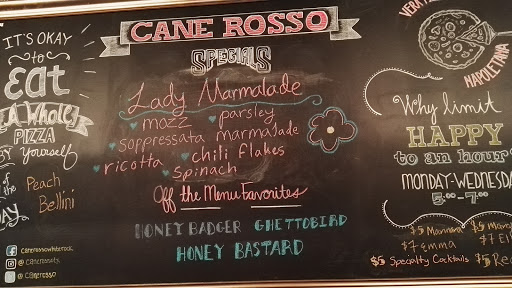 IT'S OKAY
to
Eat
A Whole
PIZZA
BY Yourself
of the
DAY
Peach
Bellini
canerossowhiterock
@canerosso
CANE ROSSO
SPECIALS
Lady Marmalade
♥ mozz ♥ parsley
♥ soppressata marmalade
♥ ricotta ♥ chili flakes
♥ spinach
Off the Menu Favorites
HONEY BADGER GHETTOBIRD
HONEY BASTARD
VERA
NAPOLETANA
Why limit
HAPPY
to an hour
MONDAY-WEDNESDA
5:00-7:00
$5 Marinara $5 Mar
$7 Emma $7 El
$5 Specialty Cocktails $5 Re